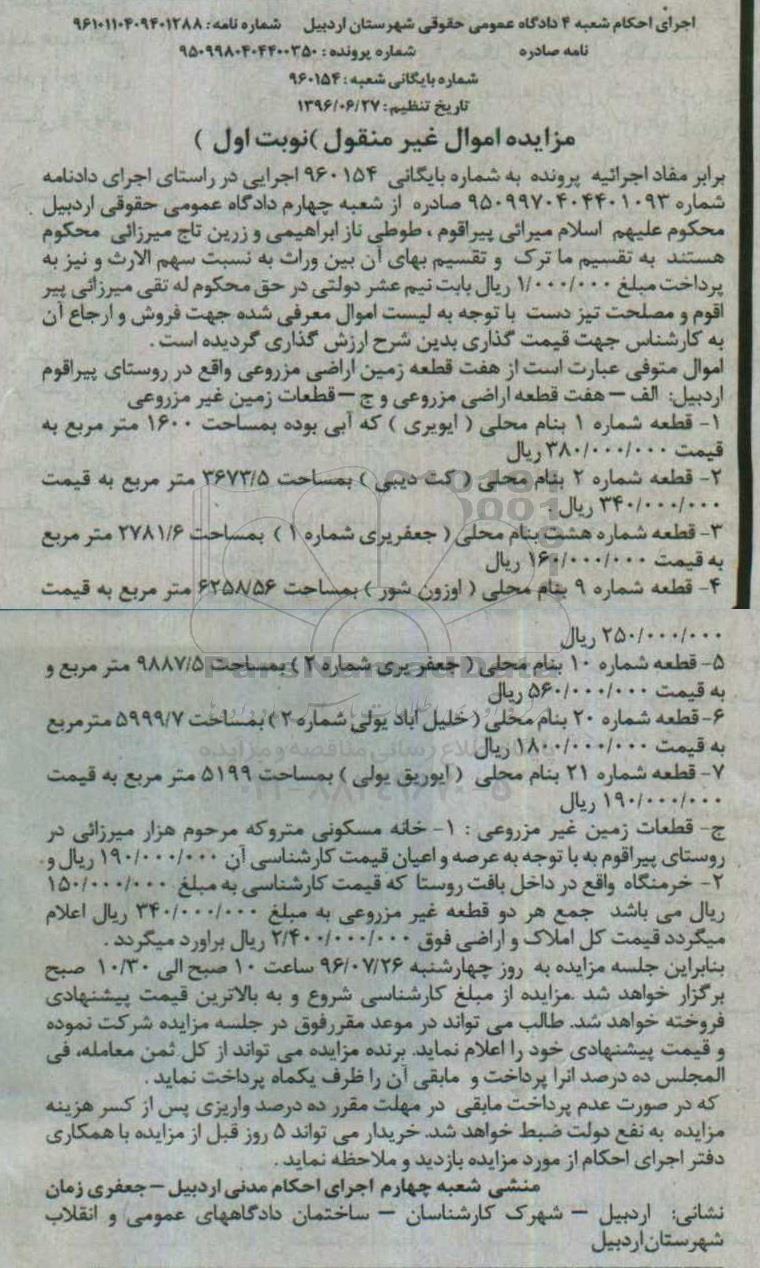 اجرای احکام شعبه ۴ دادگاه عمومی حقوقی شهرستان اردبیل شماره نامه: ۹۶۱۰۱۱۰۴۰۹۴۰۱۲۸۸
نامه صادره شماره پرونده: ۹۵۰۹۹۸۰۴۰۴۴۰۰۳۵۰
شماره بایگانی شعبه: ۹۶۰۱۵۴
تاریخ تنظیم: ۱۳۹۶/۰۶/۲۷
مزایده اموال غیر منقول )نوبت اول )
برابر مفاد اجرائیه پرونده به شماره بایگانی ۹۶۰۱۵۴ اجرایی در راستای اجرای دادنامه
شماره ۹۵۰۹۹۷۰۴۰۴۴۰۱۰۹۳ صادره از شعبه چهارم دادگاه عمومی حقوقی اردبیل
محکوم علیهم اسلام میرائی پیراقوم ، طوطی ناز ابراهیمی و زرین تاج میرزائی محکوم
هستند به تقسیم ما ترک و تقسیم بهای آن بین وراث به نسبت سهم الارث و نیز به
پرداخت مبلغ ۱/۰۰۰/۰۰۰ ریال بابت نیم عشر دولتی در حق محکوم له تقی میرزائی پیر
اقوم و مصلحت تیز دست با توجه به لیست اموال معرفی شده جهت فروش و ارجاع آن
به کارشناس جهت قیمت گذاری بدین شرح ارزش گذاری گردیده است .
اموال متوفی عبارت است از هفت قطعه زمین اراضی مزروعی واقع در روستای پیراقوم
اردبیل: الف – هفت قطعه اراضی مزروعی و ج –قطعات زمین غیر مزروعی
۱- قطعه شماره ۱ بنام محلی ( ایویری ) که آبی بوده بمساحت ۱۶۰۰ متر مربع به
قیمت ۳۸۰/۰۰۰/۰۰۰ ریال
۲- قطعه شماره ۲ بنام محلی ( کت دیبی ) بمساحت ۳۶۷۳/۵ متر مربع به قیمت
۳۴۰/۰۰۰/۰۰۰ ریال .
۳- قطعه شماره هشت بنام محلی ( جعفریری شماره ۱ ) بمساحت ۲۷۸۱/۶ متر مربع
به قیمت ۱۶۰/۰۰۰/۰۰۰ ریال
۴- قطعه شماره ۹ بنام محلی ( اوزون شور ) بمساحت ۶۲۵۸/۵۶ متر مربع به قیمت
۲۵۰/۰۰۰/۰۰۰ ریال
۵- قطعه شماره ۱۰ بنام محلی ( جعفر یری شماره ۲ ) بمساحت ۹۸۸۷/۵ متر مربع و
به قیمت ۵۶۰/۰۰۰/۰۰۰ ریال
۶- قطعه شماره ۲۰ بنام محلی ( خلیل آباد یولی شماره ۲ ) بمساحت ۵۹۹۹/۷ مترمربع
به قیمت ۱۸۰/۰۰۰/۰۰۰ ریال
۷- قطعه شماره ۲۱ بنام محلی ( ایوریق یولی ) بمساحت ۵۱۹۹ متر مربع به قیمت
۱۹۰/۰۰۰/۰۰۰ ریال
ج- قطعات زمین غیر مزروعی : ۱- خانه مسکونی متروکه مرحوم هزار میرزائی در
روستای پیراقوم به با توجه به عرصه و اعیان قیمت کارشناسی آن ۱۹۰/۰۰۰/۰۰۰ ریال و
۲- خرمنگاه واقع در داخل بافت روستا که قیمت کارشناسی به مبلغ ۱۵۰/۰۰۰/۰۰۰
ریال می باشد جمع هر دو قطعه غیر مزروعی به مبلغ ۳۴۰/۰۰۰/۰۰۰ ریال اعلام
میگردد قیمت کل املاک و اراضی فوق ۲/۴۰۰/۰۰۰/۰۰۰ ریال براورد میگردد .
بنابراین جلسه مزایده به روز چهارشنبه ۹۶/۰۷/۲۶ ساعت ۱۰ صبح الی ۱۰/۳۰ صبح
برگزار خواهد شد .مزایده از مبلغ کارشناسی شروع و به بالاترین قیمت پیشنهادی
فروخته خواهد شد. طالب می تواند در موعد مقررفوق در جلسه مزایده شرکت نموده
و قیمت پیشنهادی خود را اعلام نماید. برنده مزایده می تواند از کل ثمن معامله، فی
المجلس ده درصد انرا پرداخت و مابقی آن را ظرف یکماه پرداخت نماید .
که در صورت عدم پرداخت مابقی در مهلت مقرر ده درصد واریزی پس از کسر هزینه
مزایده به نفع دولت ضبط خواهد شد. خریدار می تواند ۵ روز قبل از مزایده با همکاری
دفتر اجرای احکام از مورد مزایده بازدید و ملاحظه نماید .
منشی شعبه چهارم اجرای احکام مدنی اردبیل –جعفری زمان
نشانی: اردبیل – شهرک کارشناسان – ساختمان دادگاههای عمومی و انقلاب
شهرستان‌اردبیل
ParsNamadData